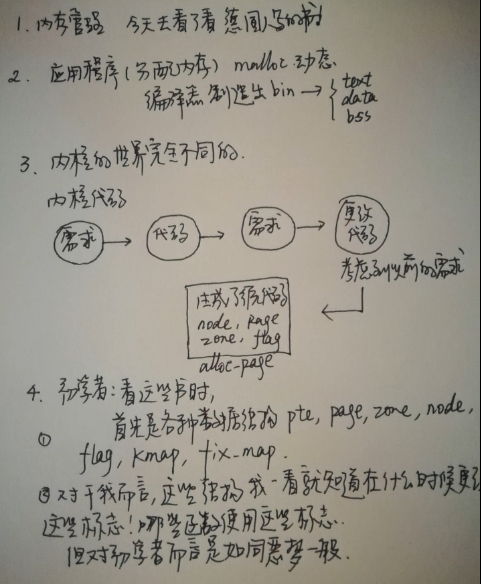 1. 内存管理 今天去看了看德国写的书
2. 应用程序(分配内存) malloc 动态
编译器 制造出 bin → text
data
bss
3. 内核的世界完全不同的.
内核代码
需求 → 代码 → 需求 → 更改
代码
考虑到以前的需求
生成了很多代码
node, page
zone, flag
alloc-page
4. 初学者: 看这些书时,
① 首先是各种数据结构 pte, page, zone, node,
flag, kmap, fix-map.
② 对于我而言, 这些结构我一看就知道在什么时候要
这些标志! 哪些函数使用这些标志.
但对初学者而言是如同恶梦一般.